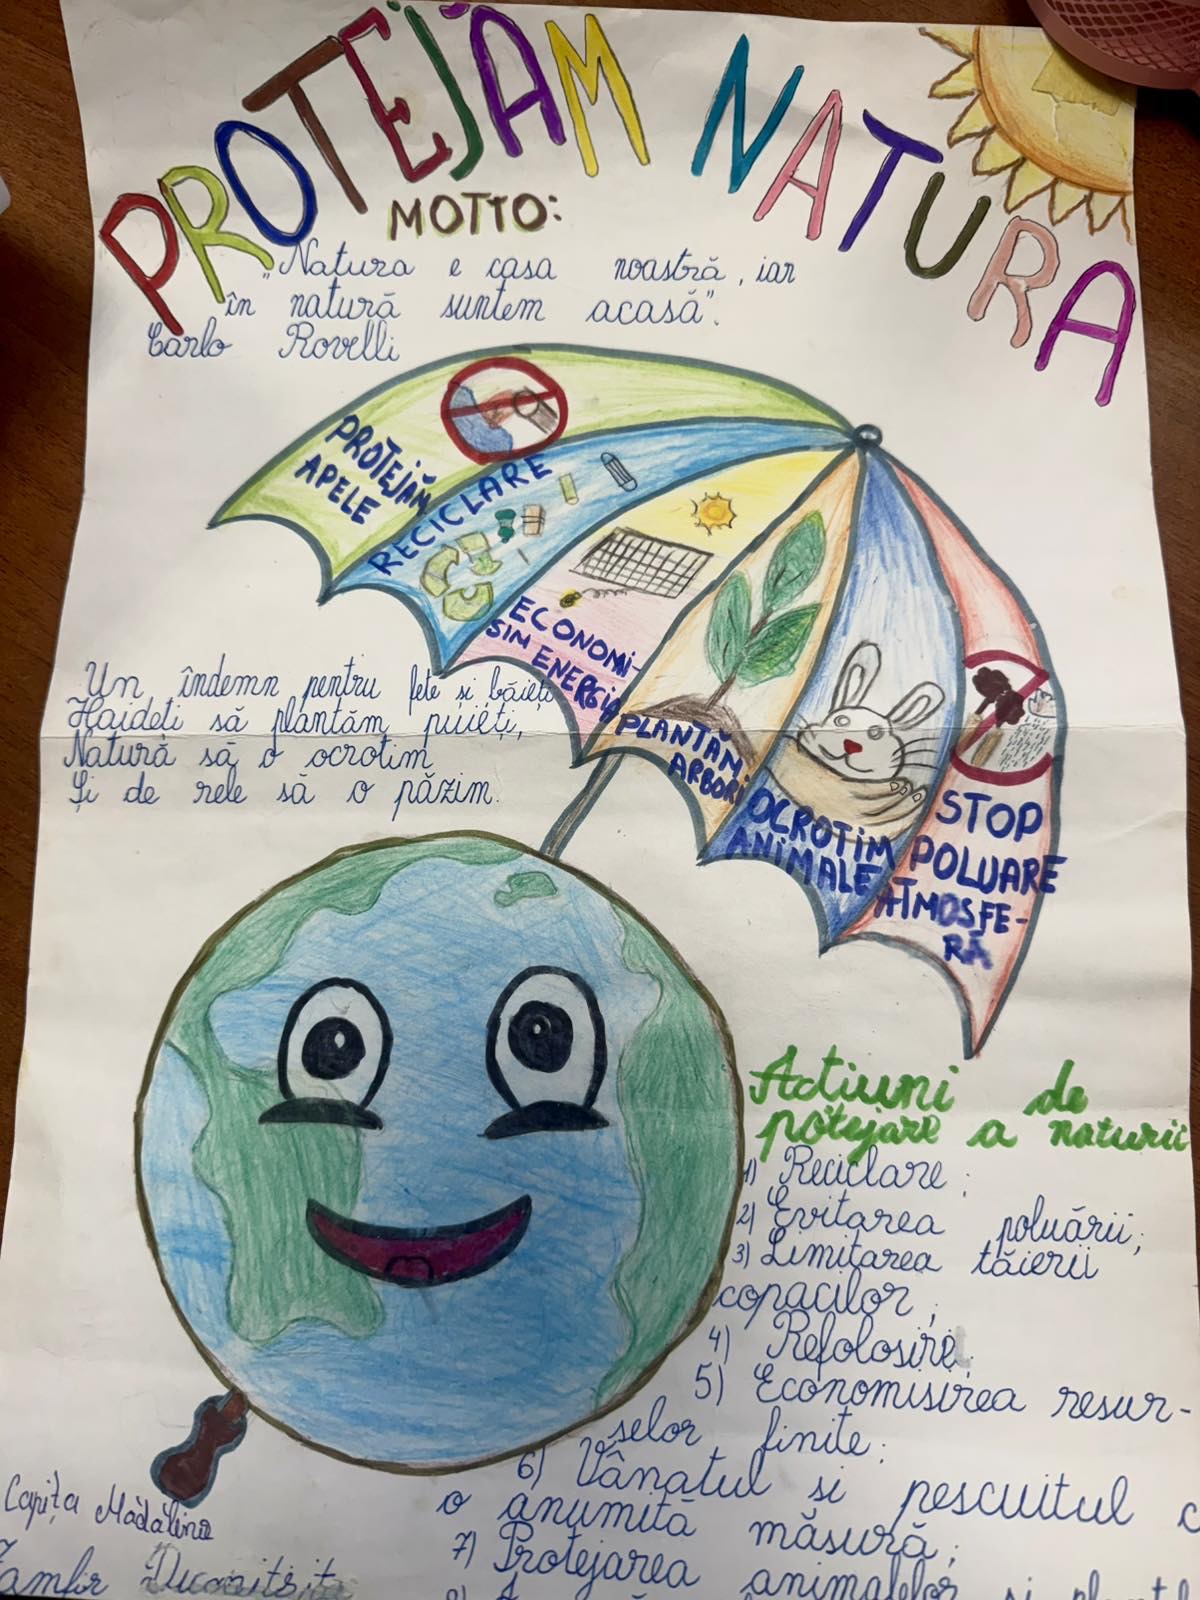 PROTEJĂM NATURA
MOTTO:
„Natura e casa noastră, iar
în natură suntem acasă”.
Carlo Rovelli
PROTEJĂM
APELE
RECICLARE
ECONOMI-
SIM ENERGIA
PLANTĂM
ARBORI
OCROTIM
ANIMALE
STOP
POLUARE
ATMOSFE-
RĂ
Un îndemn pentru fete si băieți
Haideți să plantăm puieți,
Natură să o ocrotim
Și de rele să o păzim.
Actiuni de
potejare a naturii
1) Reciclare;
2) Evitarea poluării;
3) Limitarea tăierii
copacilor;
4) Refolosire
5) Economisirea resur-
selor finite;
6) Vânatul si pescuitul
o anumită măsură;
7) Protejarea animalelor si
Capița Mădălina
Zamfir